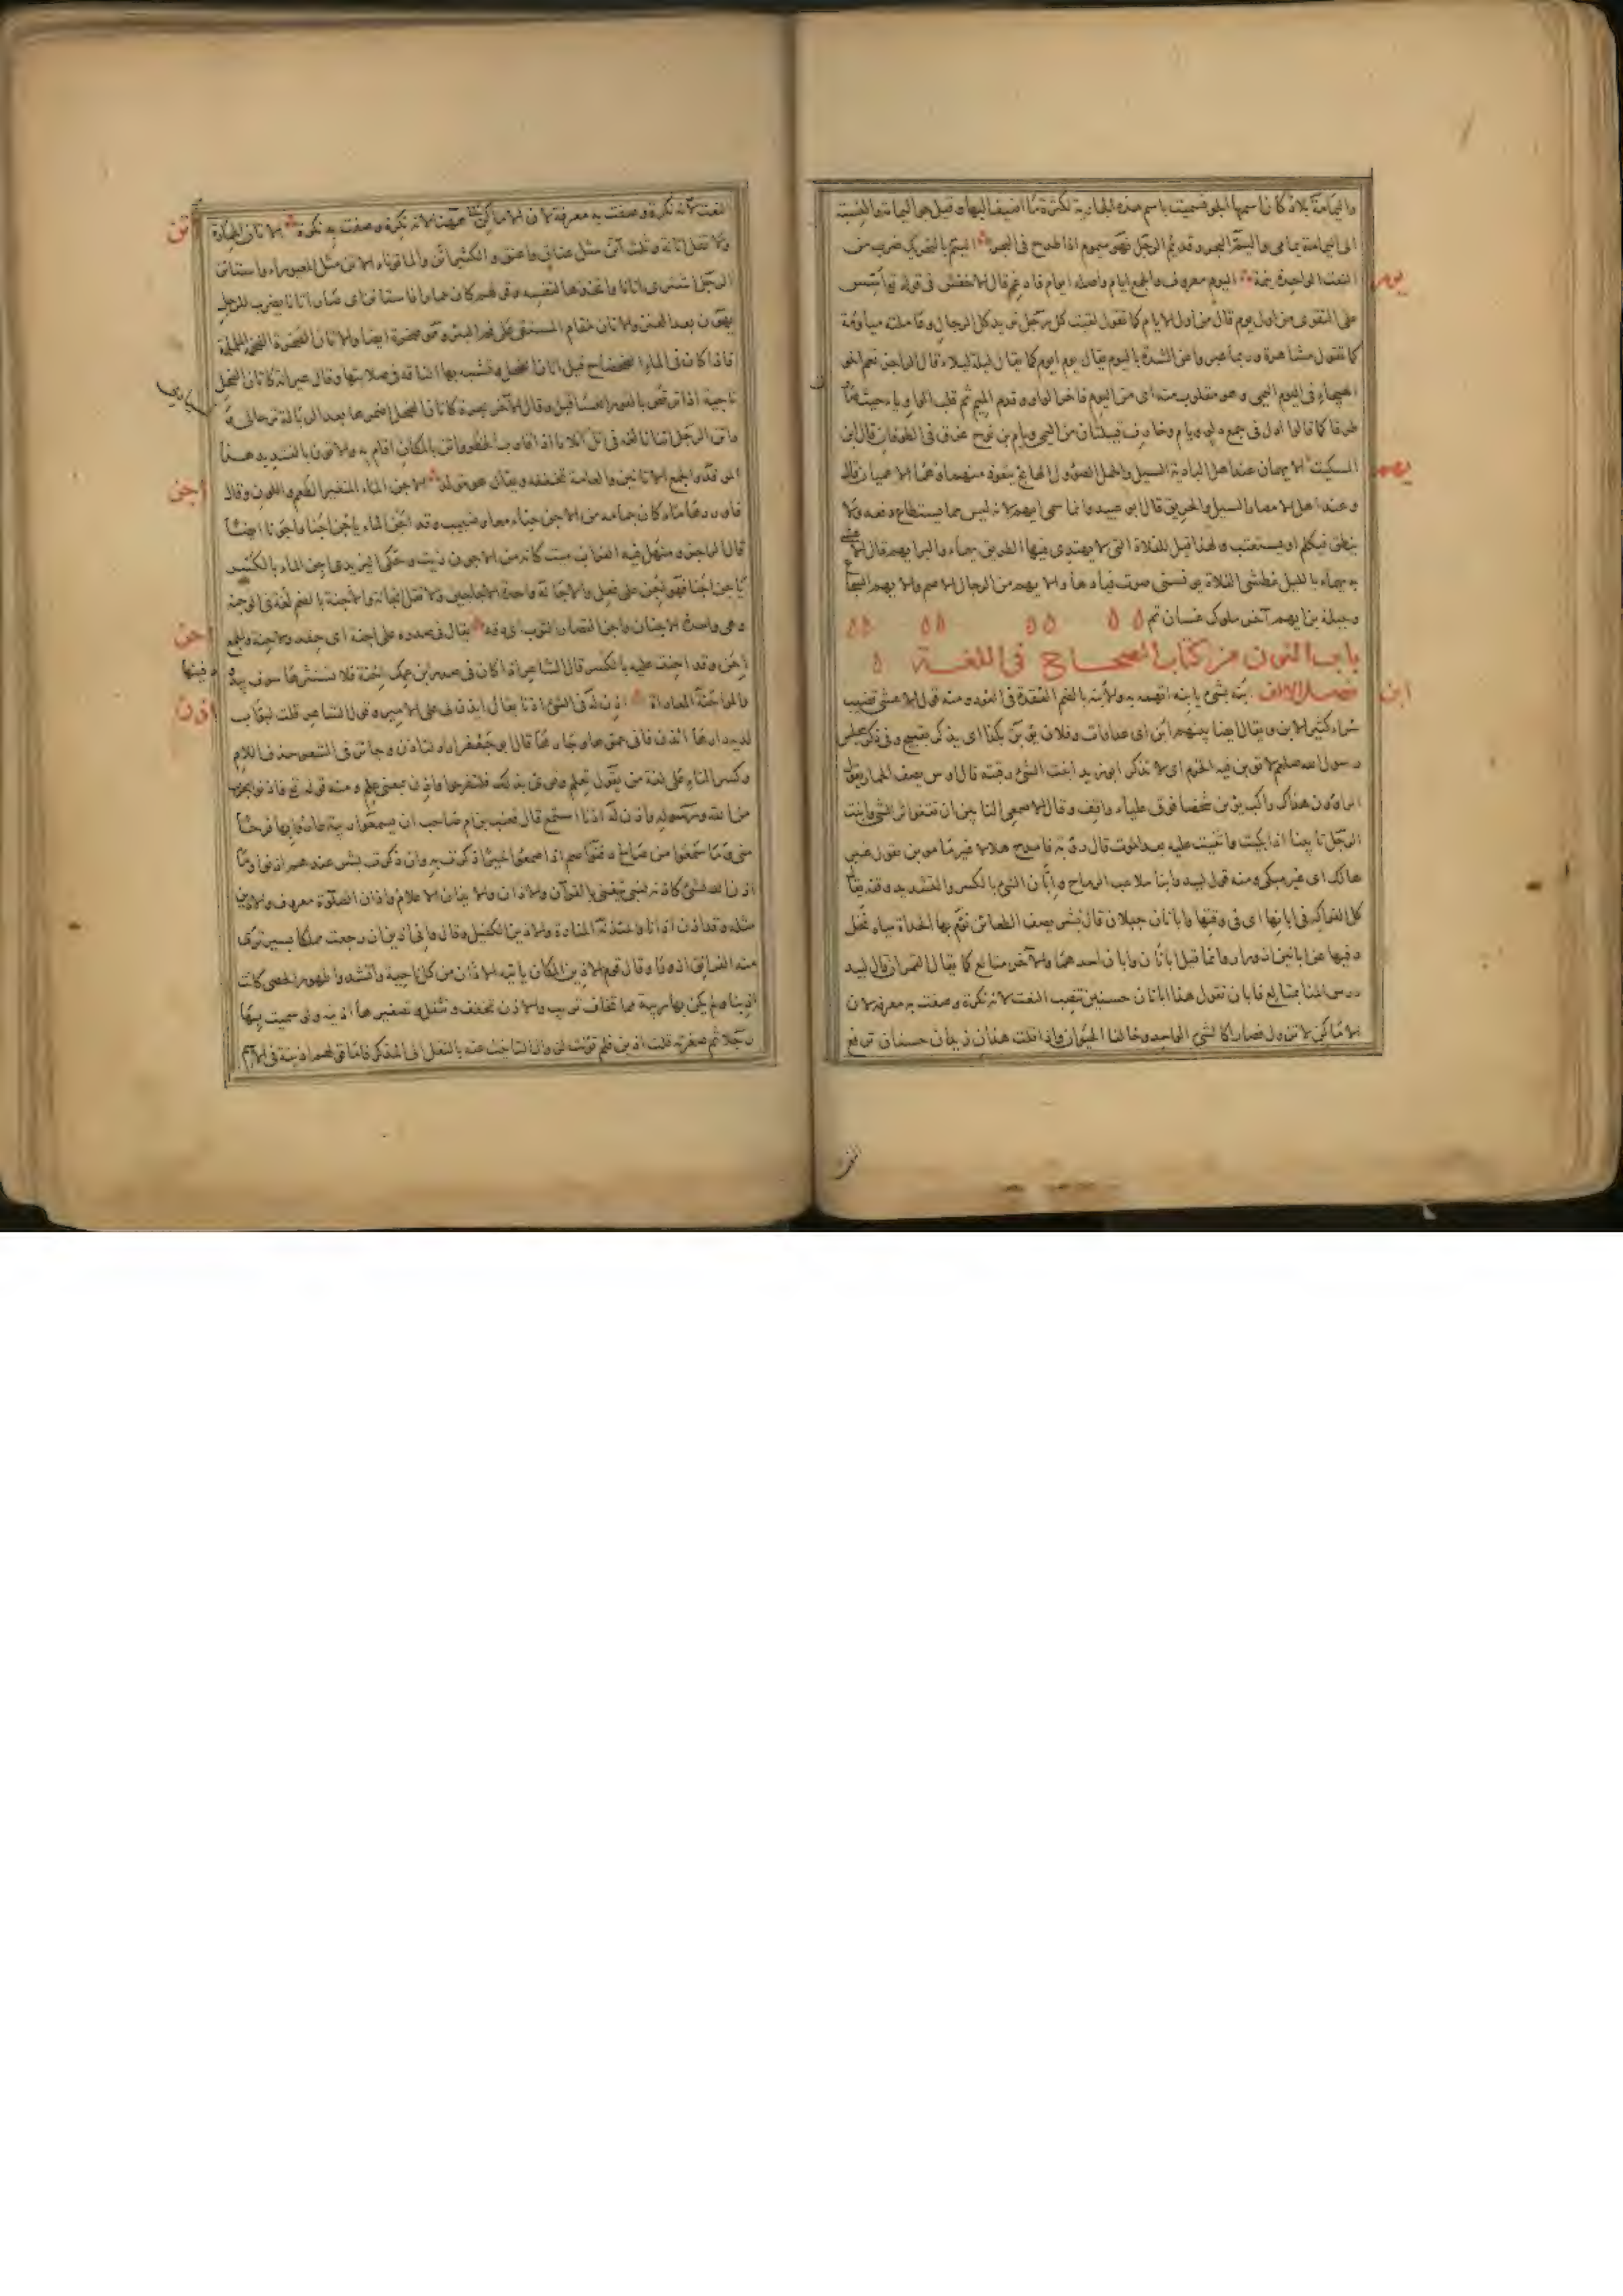 واليمامة بلاد كان اسمها الجو فسميت باسم هذه الجارية لكثرة ما اضيف اليها وقيل جو اليمامة والنسبة
الى اليمامة يمامى واليم البحر وقد يم الرجل فهو ميموم اذا طرح فى البحر اليتم بالتحريك ضرب من
يوم
النبت الواحدة ينمة اليوم معروف والجمع ايام واصله ايوام فادغم قال الاخفش فى قوله تع اسس
على التقوى من اول يوم قال من اول الايام كما تقول لقيت كل رجل تريد كل الرجال وعاملته مياومة
كما تقول مشاهرة وربما عبروا عن الشدة باليوم يقال يوم ايوم كما يقال ليلة ليلاء قال الراجز نعم اخو
الهيجاء فى اليوم اليمى وهو مقلوب منه اى من اليوم فاخر الواو وقدم الميم ثم قلب الواو ياء حيث
طرفا كما قالوا ادل فى جمع دلو ويام وخارف قبيلتان من اليمن ويام بن نوح غرق فى الطوفان قال ابن
يهم
السكيت الايهمان عند اهل البادية السيل والجمل الصؤول الهائج يتعوذ منهما وهما الاعميان قال
وعند اهل الامصار السيل والحريق قال ابو عبيد وانما سمى ايهم لانه ليس مما يستطاع دفعه ولا
ينطق فيكلم او يستعتب ولهذا قيل للفلاة التى لا يهتدى فيها الطريق يهماء والبر ايهم قال الاعشى
ويهماء بالليل غطشى الفلاة يؤنسنى صوت فيادها والايهم من الرجال الاصم والايهم الشجاع
وجبلة بن ايهم آخر ملوك غسان تم
باب النون من كتاب الصحاح فى اللغة
ابن
فصل الالف ابنه بشئ يابنه اتهمه به والابنة بالضم العقدة فى العود ومنه قول الاعشى قضيب
سراء كثير الابن ويقال ايضا بينهم ابن اى عداوات وفلان يؤبن بكذا اى يذكر بقبيح وفى ذكر مجلس
رسول الله صلعم لا تؤبن فيه الحرم اى لا تذكر ابو زيد ابنت الشئ رقبته قال اوس يصف الحمار يقول
له الراؤون هذاك راكب يؤبن شخصا فوق علياء واقف وقال الاصمعى التابين ان تقفوا اثر الشئ وابنت
الرجل تابينا اذا بكيت واثنيت عليه بعد الموت قال رؤبة فامدح بلالا غير ما مؤبن يقول غير
هالك اى غير مبكى ومنه قول لبيد وابنا ملاعب الرماح وابان الشئ بالكسر والتشديد وقته يقال
كل الفواكه فى ابانها اى فى وقتها وابانان جبلان قال بشر يصف الظعائن تؤم بها الحداة مياه نخل
وفيها عن ابانين ازورار وانما قيل ابانان وابان احدهما والآخر متالع كما يقال القمران قال لبيد
درس المنا بمتالع فابان تقول هذان ابانان حسنين تنصب النعت لانه نكرة وصفت به معرفة لان
الاماكن لا تزول فصارا كالشئ الواحد وخالفا الحيوان واذا قلت هذان زيدان حسنان ترفع
النعت لانه نكرة وصفت به معرفة لان الاماكن ههنا لانه نكرة وصفت به نكرة الاتان الحمارة
اتن
ولا تقل اتانة وثلث آتن مثل عناق واعنق والكثير اتن والماتوناء الاتن مثل المعيوراء واستاتن
الرجل اشترى اتانا واتخذها لنفسه وقولهم كان حمارا فاستاتن اى صار اتانا يضرب للرجل
يهون بعد العز والاتان مقام المستقى على فم البئر وهو صخرة ايضا والاتان الصخرة الضخمة الململمة
فاذا كان فى الماء الضحضاح قيل اتان الضحل وتشبه بها الناقة فى صلابتها وقال عيرانة كاتان الضحل
ناجية اذا ترقص بالقور العساقيل وقال الآخر بحرة كاتان الضحل اضمرها بعد الربالة ترحالى
واتن الرجل اتنانا لغة فى اتل اتلانا اذا قارب الخطو واتن بالمكان اقام به والاتون بالتشديد هذا
اجن
الموقد والجمع الاتاتين والعامة تخففه ويقال هو مولد الاجن الماء المتغير الطعم واللون وقال
فاوردها ماء كان جمامه من الاجن حناء معا وصبيب وقد اجن الماء ياجن اجنا واجونا اجنا
قال الراجز ومنهل فيه الغراب ميت كانه من الاجون زيت وحكى اليزيدى اجن الماء بالكسر
ياجن اجنا فهو اجن على فعل والاجانة واحدة الاجاجين ولا تقل انجانة والاجنة بالضم لغة فى الوجنة
احن
وهى واحدة الاجنان واجن القصار الثوب اى دقه يقال فى صدره على احنة اى حقد والاحنة والجمع
احن وقد احنت عليه بالكسر قال الشاعر اذا كان فى صدر ابن عمك احنة فلا تستثرها سوف يبدو
دفينها
اذن
والمواحنة المعاداة اذن له فى الشئ اذنا يقال ايذن لى على الامير وقول الشاعر قلت لبواب
لديه دارها تئذن فانى حمؤها وجارها قال ابو جعفر اراد لتاذن وجائز فى الشعر حذف اللام
وكسر التاء على لغة من يقول تعلم وقرئ بذلك فلتفرحوا واذن بمعنى علم ومنه قوله تع فاذنوا بحرب
من الله ورسوله واذن له اذنا استمع قال قعنب بن ام صاحب ان يسمعوا ريبة طاروا بها فرحا
منى وما سمعوا من صالح دفنوا صم اذا سمعوا خيرا ذكرت به وان ذكرت بشر عندهم اذنوا وما
اذن الله لشئ كاذنه لنبى يتغنى بالقرآن والاذان والايذان الاعلام واذان الصلوة معروف والاذين
مثله وقد اذن اذانا والمئذنة المنارة والاذين الكفيل وقال وانى اذين ان رجعت مملكا بسير ترى
منه الفرانق ازورا وقال قوم الاذين المكان ياتيه الاذان من كل ناحية وانشدوا طهور الحصى كانت
اذينا ولم يكن بها ريبة مما تخاف تريب والاذن تخفف وتثقل وتصغيرها اذينة ولو سميت بها
رجلا ثم صغرته قلت اذين فلم تؤنث لزوال التانيث عنه بالنقل الى المذكر فاما قولهم اذينة فى الاسم